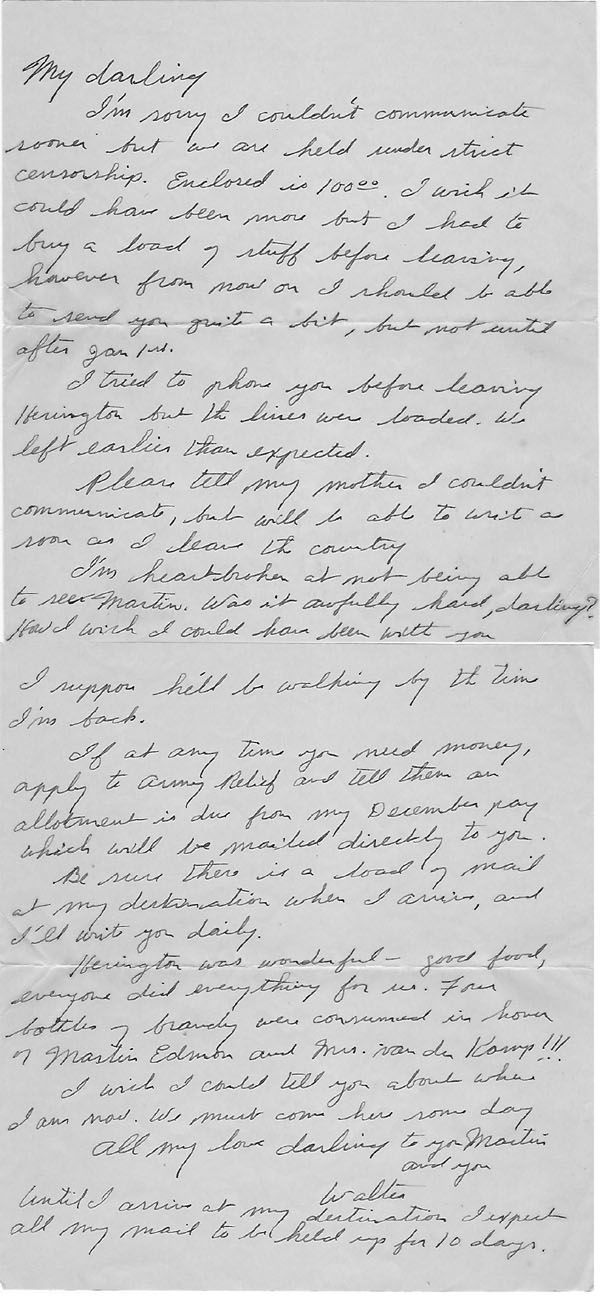 My darling
I'm sorry I couldn't communicate
sooner but we are held under strict
censorship. Enclosed is 100⁰⁰. I wish it
could have been more but I had to
buy a load of stuff before leaving,
however from now on I should be able
to send you quite a bit, but not until
after Jan 1st.
I tried to phone you before leaving
Herington but the lines were loaded. We
left earlier than expected.
Please tell my mother I couldn't
communicate, but will be able to write as
soon as I leave the country
I'm heartbroken at not being able
to see Martin. Was it awfully hard, darling?
How I wish I could have been with you
I suppose he'll be walking by the time
I'm back.
If at any time you need money,
apply to Army Relief and tell them an
allotment is due from my December pay
which will be mailed directly to you.
Be sure there is a load of mail
at my destination when I arrive, and
I'll write you daily.
Herington was wonderful – good food,
everyone did everything for us. Four
bottles of brandy were consumed in honor
of Martin Edmon and Mrs. van der Kamp!!!
I wish I could tell you about where
I am now. We must come here some day
All my love darling to you Martin
and you
Walter
Until I arrive at my destination I expect
all my mail to be held up for 10 days.